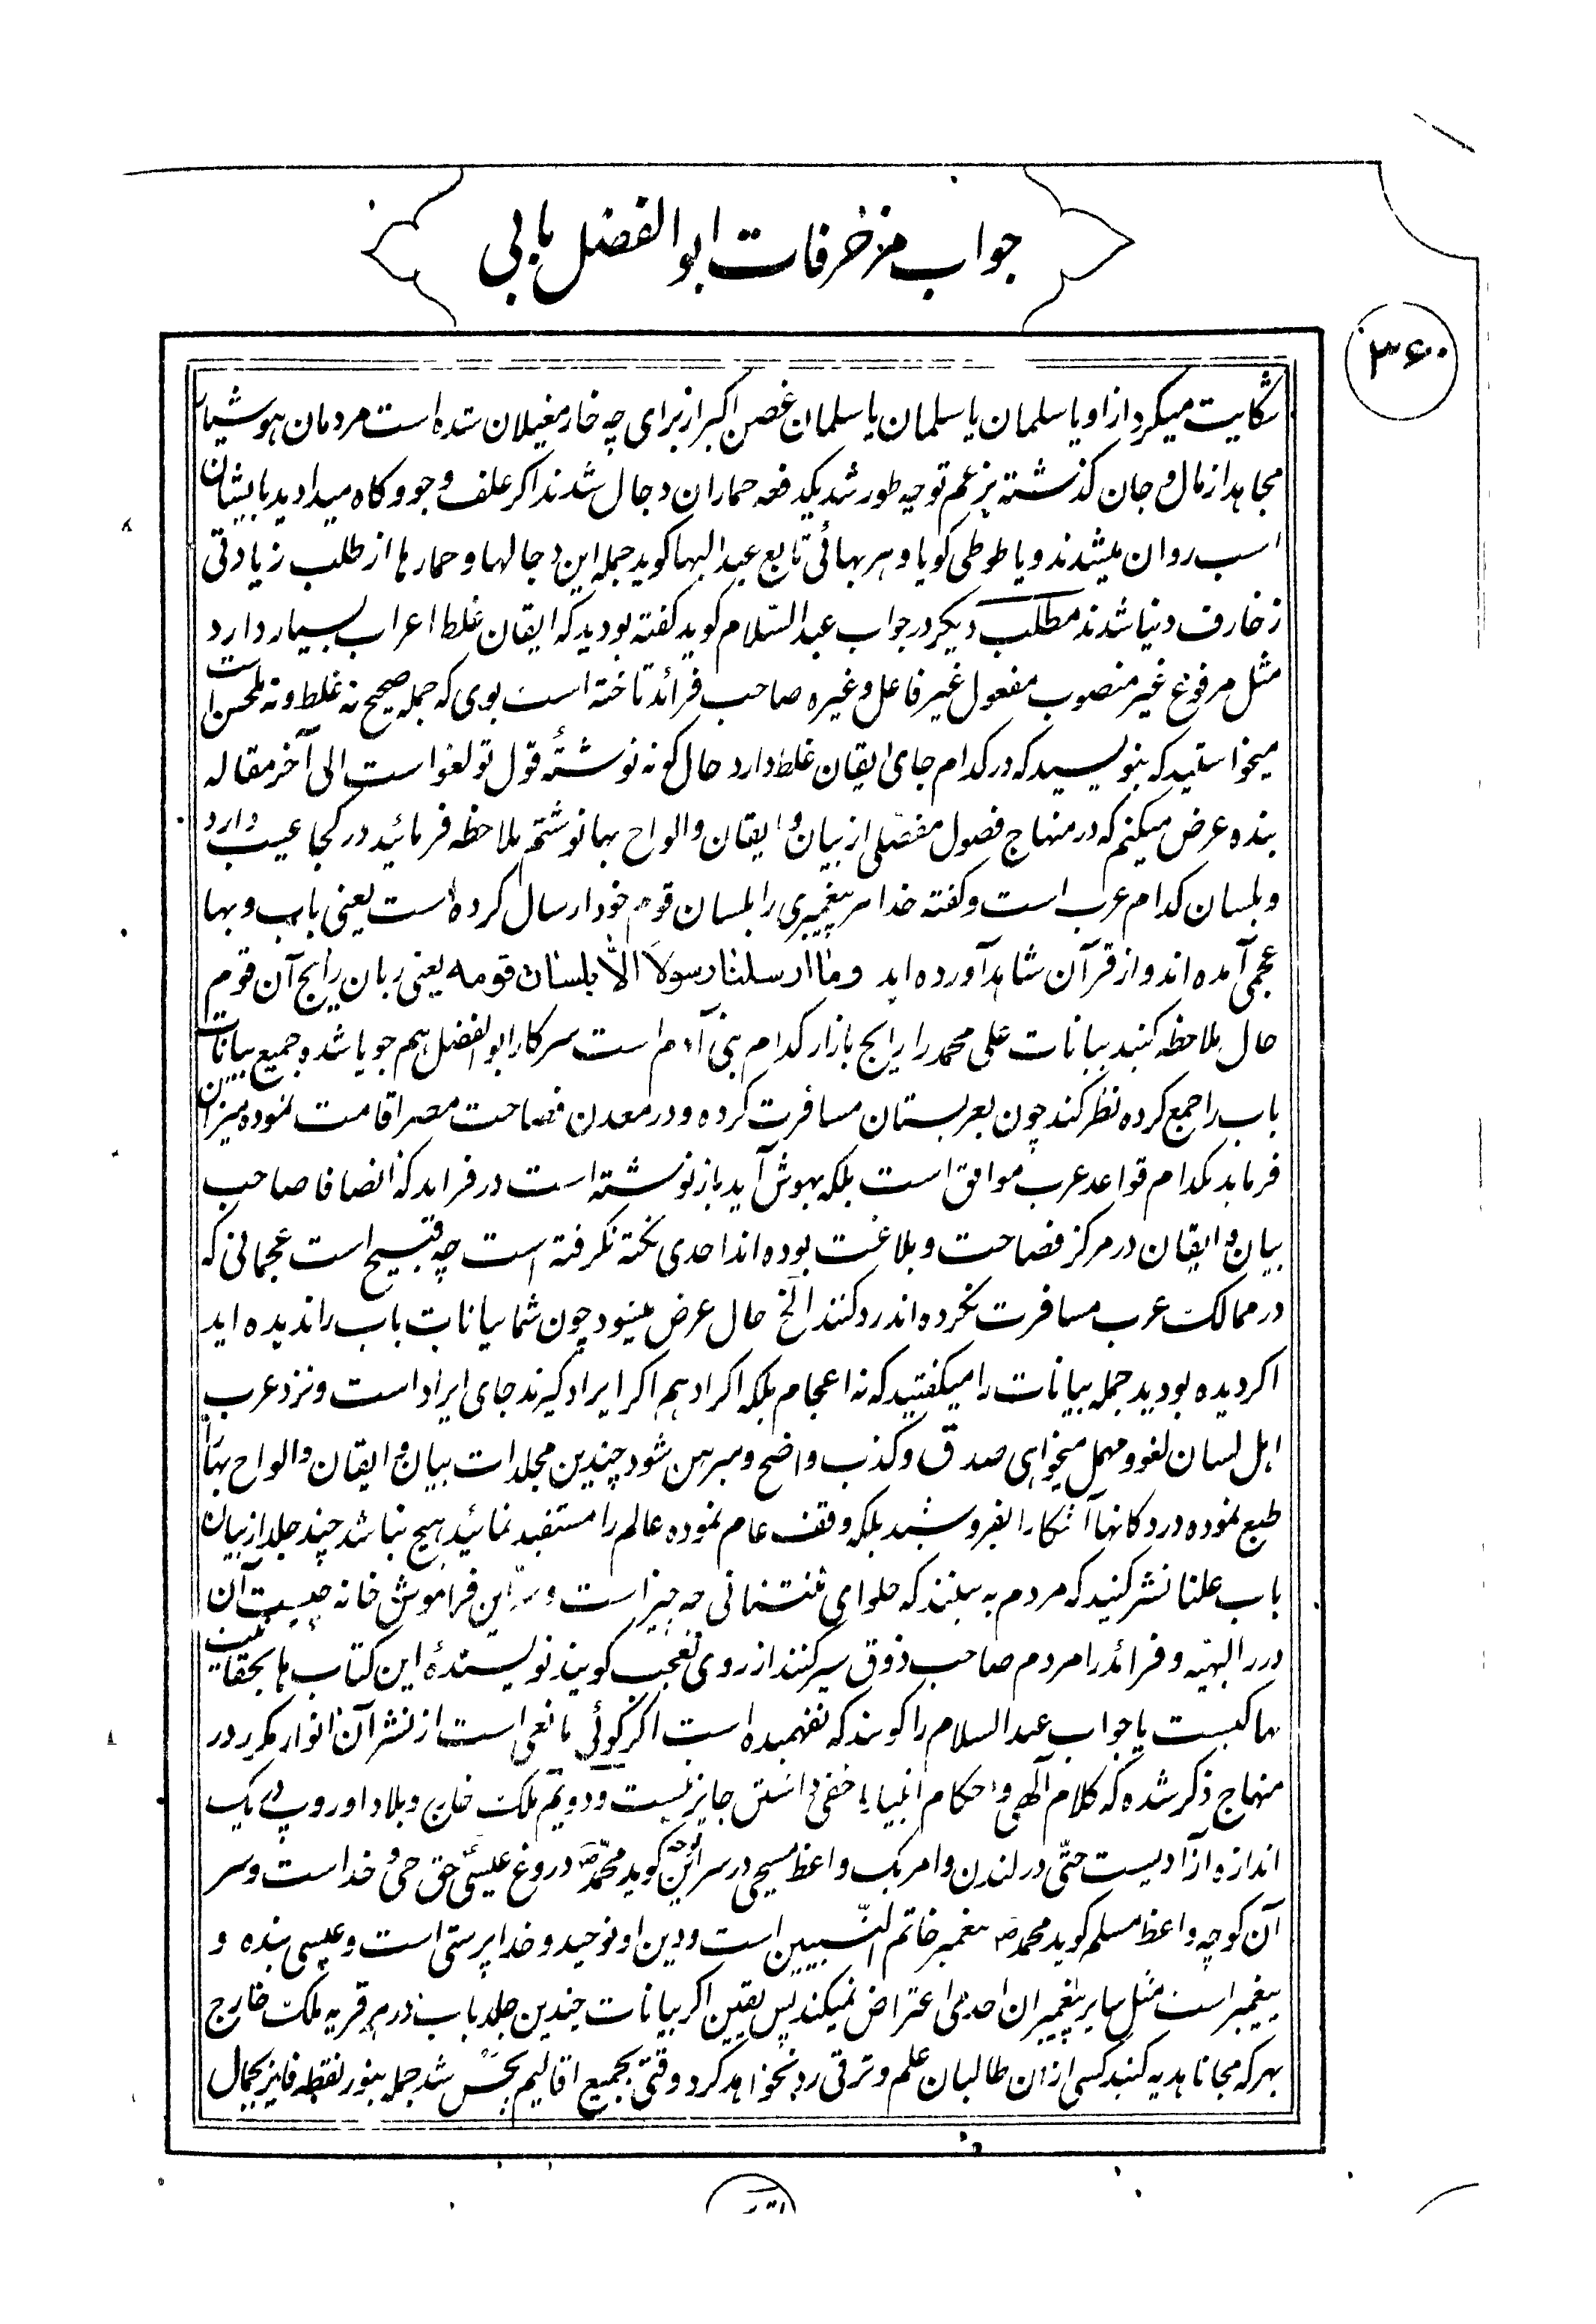 جواب مزخرفات ابوالفضل بابی
۳۶۰
شکایت میکرد از او یا سلمان یا سلمان یا سلمان غصن اکبر از برای چه خار مغیلان شده است مردمان هوشیار
مجاهد از مال و جان کذشته بزعم تو چه طور شد یکدفعه حماران دجال شدند اکر علف و جو و کاه میدادید بایشان
اسب روان میشدند و یا طوطی کویا و هر بهائی تابع عبدالبها کوید جمله این دجالها و حمارها از طلب زیادتی
زخارف دنیا شدند مطلب دیکر در جواب عبدالسّلام کوید کفته بودید که ایقان غلط اعراب بسیار دارد
مثل مرفوع غیر منصوب مفعول غیر فاعل و غیره صاحب فرائد تاخته است بوی که جمله صحیح نه غلط و نه ملحن است
میخواستید که بنویسید که در کدام جای ایقان غلط دارد حال کونه نوشتهٔ قول تو لغو است الی آخر مقاله
بنده عرض میکنم که در منهاج فصول مفصّلی از بیان و ایقان و الواح بها نوشتم ملاحظه فرمائید در کجا عیب دارد
و بلسان کدام عرب است و کفته خدا هر پیغمبری را بلسان قوم خود ارسال کرده است یعنی باب و بها
عجمی آمده اند و از قرآن شاهد آورده اید وما ارسلنا رسولا الّا بلسان قومه یعنی زبان رایج آن قوم
حال ملاحظه کنید بیانات علی محمد را رایج بازار کدام بنی آدم است سرکار ابوالفضل هم جویا شده جمیع بیانات
باب را جمع کرده نظر کند چون بعربستان مسافرت کرده و در معدن فصاحت مصر اقامت نموده میزان
فرماید بکدام قواعد عرب موافق است بلکه بهوش آید باز نوشته است در فراید که انصافا صاحب
بیان و ایقان در مرکز فصاحت و بلاغت بوده اند احدی نکته نکرفته است چه قبیح است عجمانی که
در ممالک عرب مسافرت نکرده اند رد کنند الخ حال عرض میشود چون شما بیانات باب را ندیده اید
اکر دیده بودید جمله بیانات را میکفتید که نه اعجام بلکه اکراد هم اکر ایراد کیرند جای ایراد است و نزد عرب
اهل لسان لغو و مهمل میخواهی صدق و کذب واضح و مبرهن شود چندین مجلدات بیان و ایقان و الواح بها
طبع نموده در دکانها آشکارا بفروشید بلکه وقف عام نموده عالم را مستفید نمائید هیچ نباشد چند جلد از بیان
باب علنا نشر کنید که مردم به بینند که حلوای تنتنانی چه چیز است و سرّ این فراموش خانه چیست آن
درر البهیّه و فرائد را مردم صاحب ذوق سیر کنند از روی تعجب کویند نویسندهٔ این کتاب ها بحقانیت
بها کیست یا جواب عبدالسلام را کویند که نفهمیده است اکر کوئی مانعی است از نشر آن انوار مکرر در
منهاج ذکر شده که کلام آلهی و احکام انبیا را خفی داشتن جایز نیست و دویّم ملک خارج و بلاد اوروپ یک
اندازه آزادیست حتّی در لندن و امریک واعظ مسیحی در سر این کوچه کوید محمّد ص دروغ عیسی حق حی و خداست و سر
آن کوچه واعظ مسلم کوید محمد ص پیغمبر خاتم النّبیین است و دین او توحید و خداپرستی است و عیسی بنده و
پیغمبر است مثل سایر پیغمبران احدی اعتراض نمیکند پس یقین اکر بیانات چندین جلد باب در هر قریه ملک خارج
بهر که مجانا هدیه کنید کسی از آن طالبان علم و ترقی رد نخواهد کرد وقتی بجمیع اقالیم پخش شد جمله بنور نقطه فایز بجمال